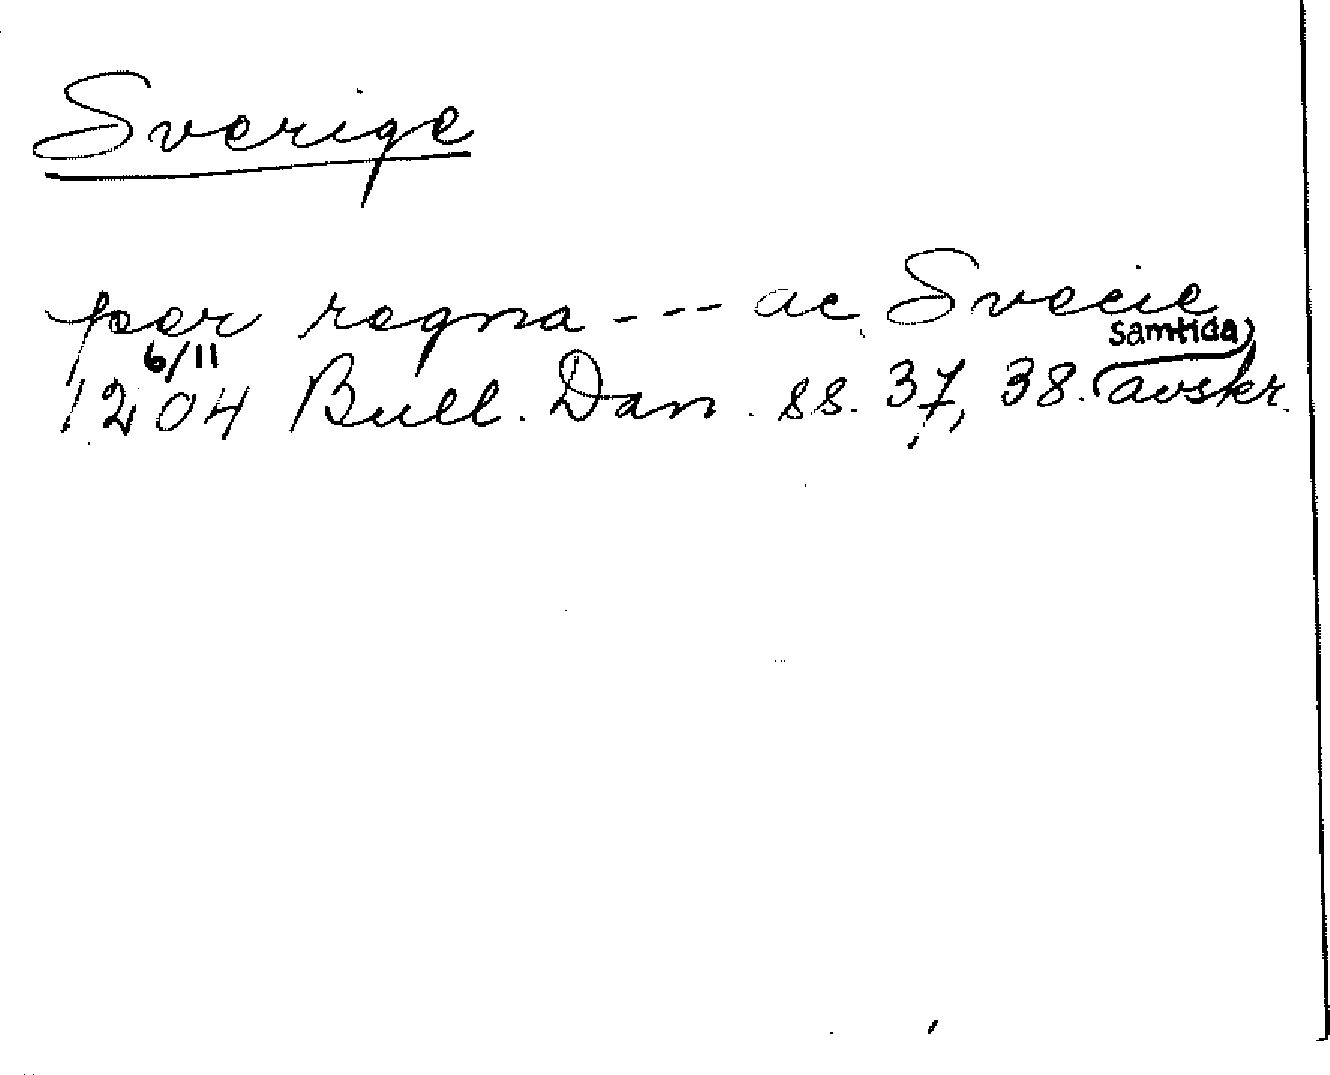 Sverige
per regna --- ac Svecie
6/11 samtida
1204 Bull. Dan. ss. 37, 38. avskr.